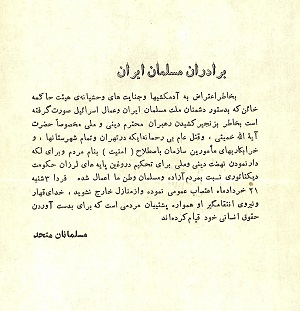 برادران مسلمان ایران
بخاطر اعتراض به آدمکشیها وجنایت های وحشیانه‌ی هیئت حاکمه
خائن که بدستور دشمنان ملت مسلمان ایران وعمال اسرائیل صورت گرفته
است بخاطر بزنجیر کشیدن رهبران محترم دینی و ملی مخصوصاً حضرت
آیة الله خمینی ، وقتل عام بی رحمانه‌ایکه درتهران وتمام شهرستانها ، و
خرابکاریهای مأمورین سازمان باصطلاح ( امنیت ) بنام مردم وبرای لکه
دارنمودن نهضت دینی وملی برای تحکیم دروغین پایه های لرزان حکومت
دیکتاتوری نسبت بمردم آزاده ومسلمان وطن ما اعمال شده فردا ۳شنبه
۲۱ خردادماه اعتصاب عمومی نموده وازمنازل خارج نشوید ، خدای قهار
ونیروی انتقامگیر او همواره پشتیبان مردمی است که برای بدست آوردن
حقوق انسانی خود قیام کرده‌اند
مسلمانان متحد